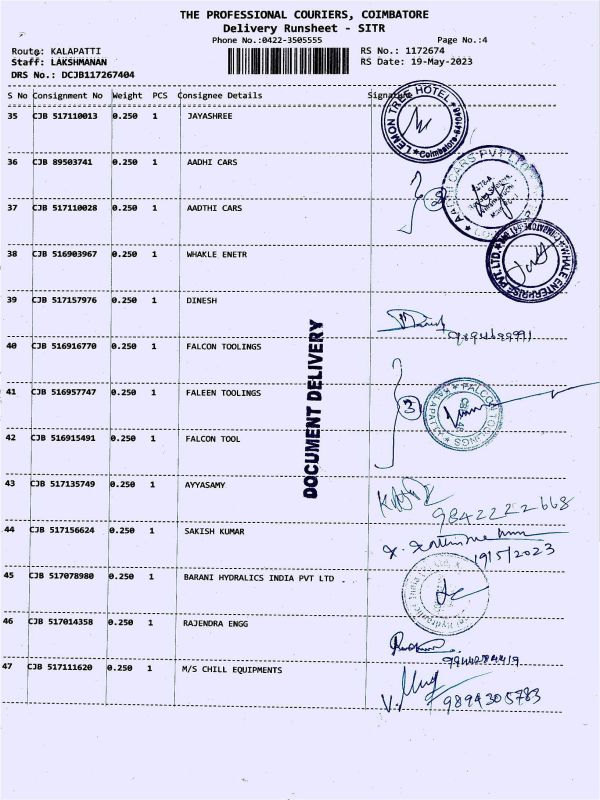 THE PROFESSIONAL COURIERS, COIMBATORE
Delivery Runsheet - SITR
Phone No.:0422-3505555 Page No.:4
Route: KALAPATTI RS No.: 1172674
Staff: LAKSHMANAN RS Date: 19-May-2023
DRS No.: DCJB117267404
S No Consignment No Weight PCS Consignee Details Signature
35 CJB 517110013 0.250 1 JAYASHREE
LEMON TREE HOTEL
36 CJB 89503741 0.250 1 AADHI CARS
AADHI CARS PVT LTD
37 CJB 517110028 0.250 1 AADTHI CARS
38 CJB 516903967 0.250 1 WHAKLE ENETR
WHALE ENTERPRISE PVT. LTD.
39 CJB 517157976 0.250 1 DINESH
40 CJB 516916770 0.250 1 FALCON TOOLINGS
41 CJB 516957747 0.250 1 FALEEN TOOLINGS
3
FALCON TOOLINGS
KALAPATTI
42 CJB 516915491 0.250 1 FALCON TOOL
DOCUMENT DELIVERY
43 CJB 517135749 0.250 1 AYYASAMY
9842222668
44 CJB 517156624 0.250 1 SAKISH KUMAR
19/5/2023
45 CJB 517078980 0.250 1 BARANI HYDRALICS INDIA PVT LTD .
46 CJB 517014358 0.250 1 RAJENDRA ENGG
47 CJB 517111620 0.250 1 M/S CHILL EQUIPMENTS
9894305783